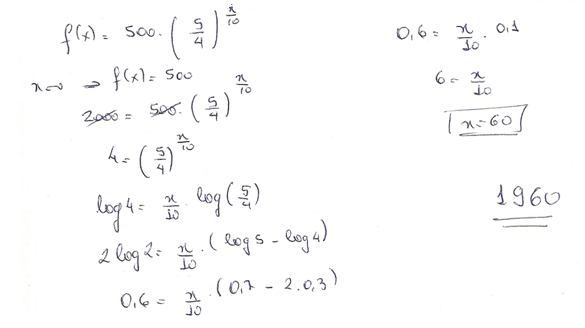 f(x) = 500 · (5/4)^(x/10)
x=0 → f(x) = 500
2000 = 500 · (5/4)^(x/10)
4 = (5/4)^(x/10)
log 4 = x/10 · log(5/4)
2 log 2 = x/10 · (log 5 - log 4)
0,6 = x/10 · (0,7 - 2.0,3)
0,6 = x/10 · 0,1
6 = x/10
x = 60
1960